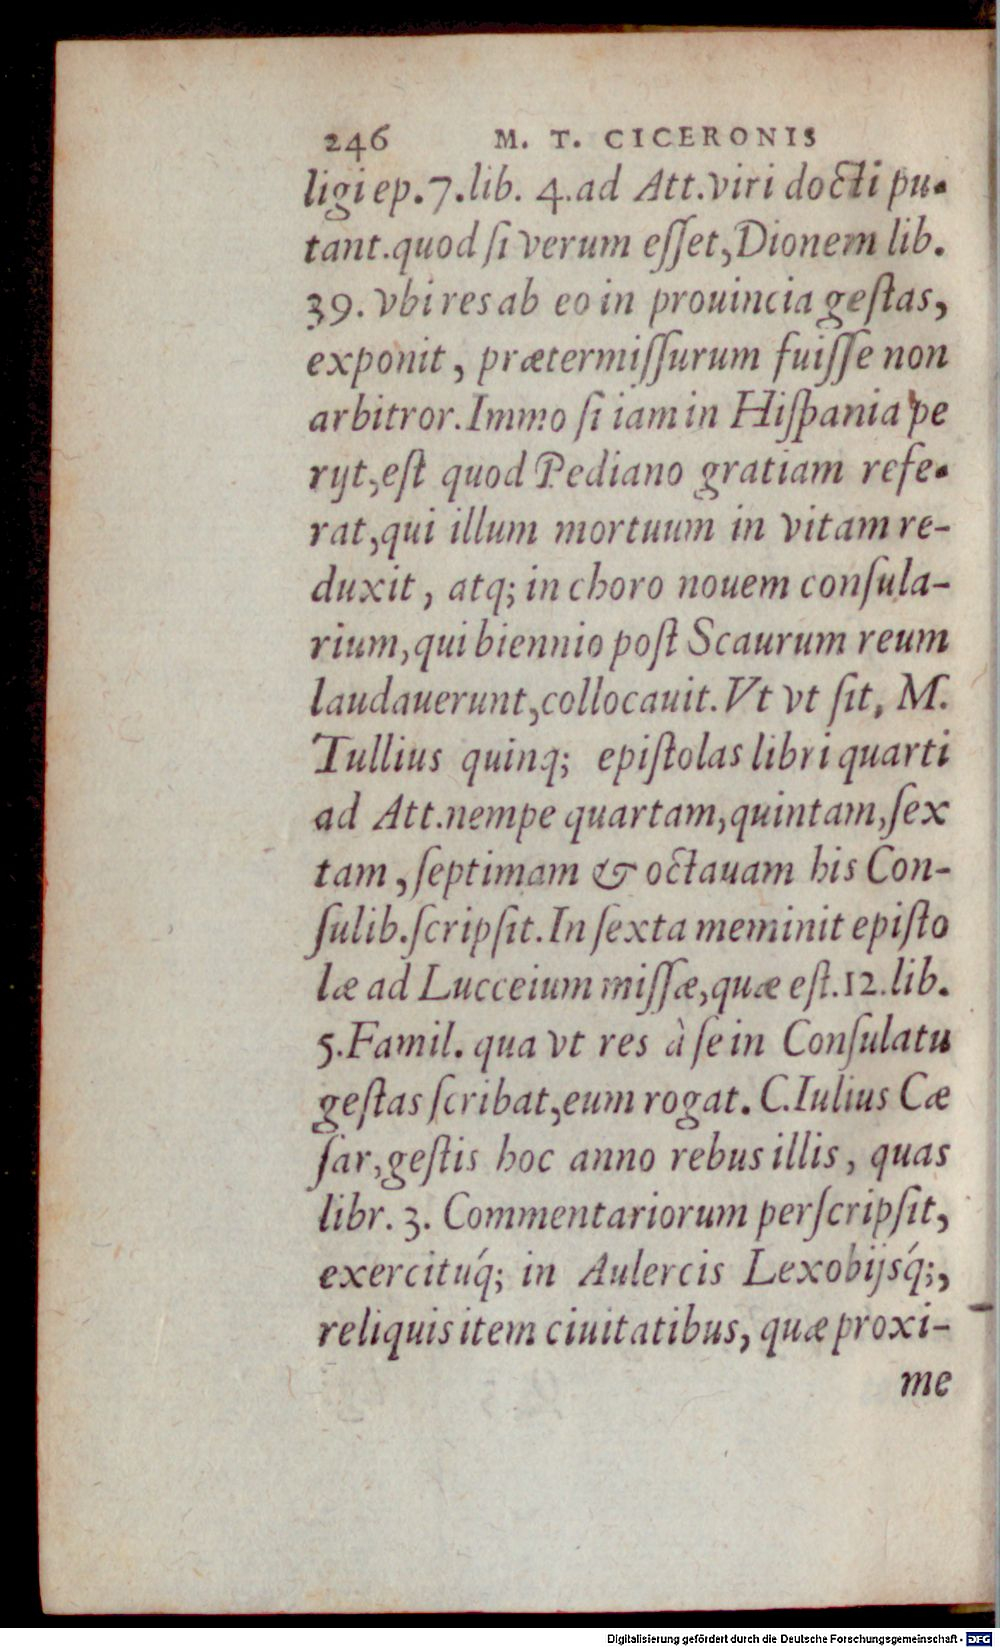 246 M. T. CICERONIS
ligi ep. 7. lib. 4. ad Att. viri docti pu-
tant. quod ſi verum eſſet, Dionem lib.
39. vbi res ab eo in prouincia geſtas,
exponit, prætermiſſurum fuiſſe non
arbitror. Immo ſi iam in Hiſpania pe
rijt, eſt quod Pediano gratiam refe-
rat, qui illum mortuum in vitam re-
duxit, atq; in choro nouem conſula-
rium, qui biennio poſt Scaurum reum
laudauerunt, collocauit. Vt vt ſit, M.
Tullius quinq; epiſtolas libri quarti
ad Att. nempe quartam, quintam, ſex
tam, ſeptimam & octauam his Con-
ſulib. ſcripſit. In ſexta meminit epiſto
læ ad Lucceium miſſæ, quæ eſt. 12. lib.
5. Famil. qua vt res à ſe in Conſulatu
geſtas ſcribat, eum rogat. C. Iulius Cæ
ſar, geſtis hoc anno rebus illis, quas
libr. 3. Commentariorum perſcripſit,
exercitúq; in Aulercis Lexobijsq́;,
reliquis item ciuitatibus, quæ proxi-
me
Digitalisierung gefördert durch die Deutsche Forschungsgemeinschaft - DFG